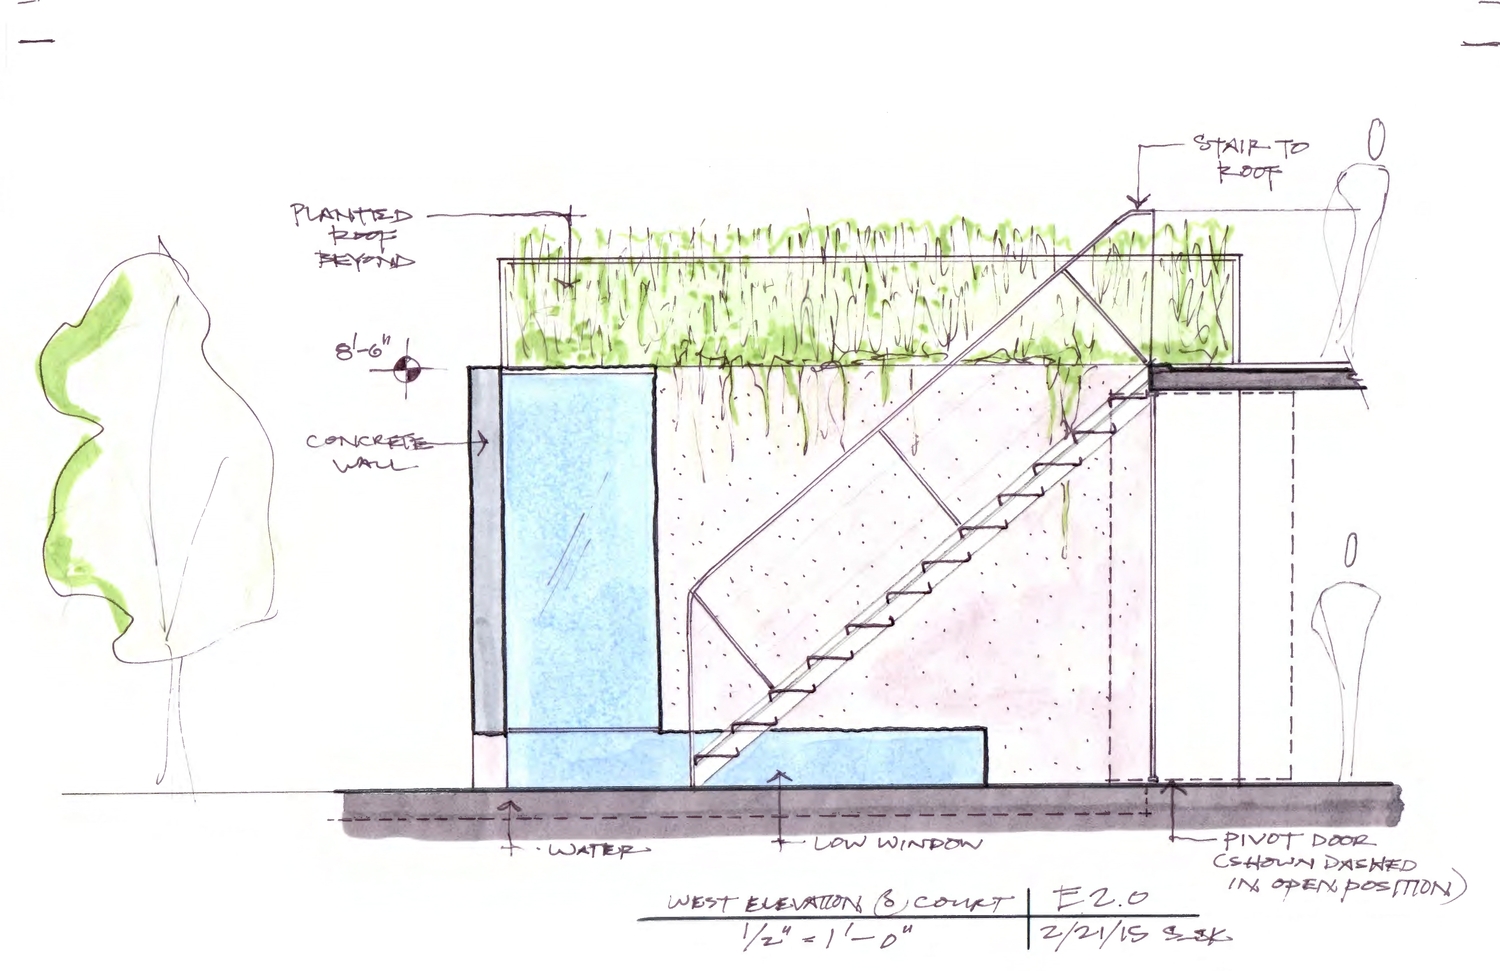 STAIR TO
ROOF
PLANTED
ROOF
BEYOND
8'-6"
CONCRETE
WALL
WATER
LOW WINDOW
PIVOT DOOR
(SHOWN DASHED
IN OPEN POSITION)
WEST ELEVATION @ COURT
E2.0
1/2" = 1'-0"
2/21/15